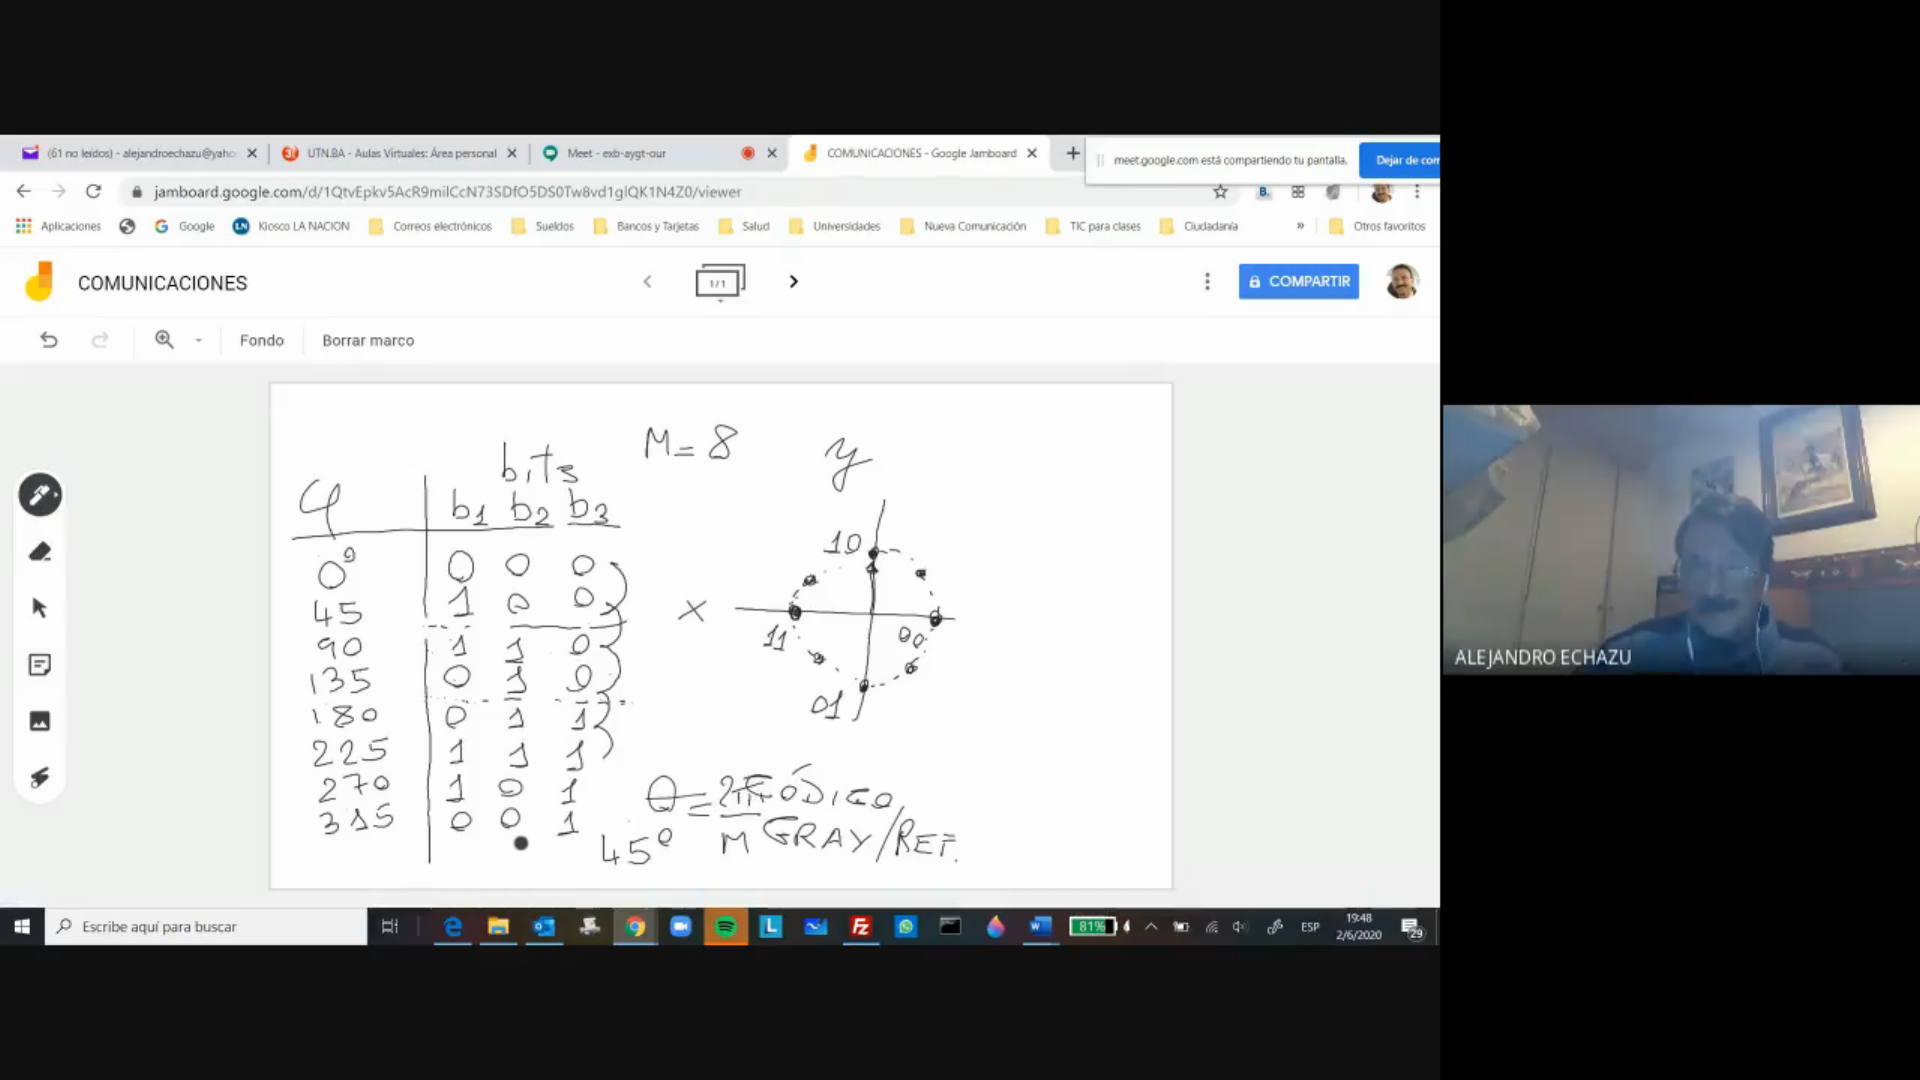 (61 no leídos) - alejandroechazu@yaho
UTN.BA - Aulas Virtuales: Área personal
Meet - exb-aygt-our
COMUNICACIONES - Google Jamboard
meet.google.com está compartiendo tu pantalla.
Dejar de com
jamboard.google.com/d/1QtvEpkv5AcR9milCcN73SDfO5DS0Tw8vd1glQK1N4Z0/viewer
Aplicaciones
Google
Kiosco LA NACION
Correos electrónicos
Sueldos
Bancos y Tarjetas
Salud
Universidades
Nueva Comunicación
TIC para clases
Ciudadanía
»
Otros favoritos
COMUNICACIONES
1/1
COMPARTIR
Fondo
Borrar marco
M=8
y
bits
φ b1 b2 b3
0° 0 0 0
45 1 0 0
90 1 1 0
135 0 1 0
180 0 1 1
225 1 1 1
270 1 0 1
315 0 0 1
x
10
11
00
01
θ = 2π/M
45°
CÓDIGO
GRAY/REF.
ALEJANDRO ECHAZU
Escribe aquí para buscar
81%
ESP
19:48
2/6/2020
29